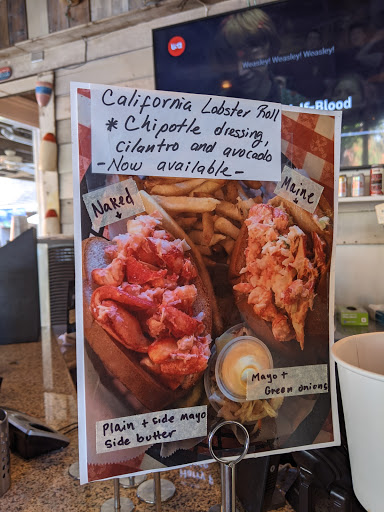 Weasley! Weasley! Weasley!
Blood
California Lobster Roll
* Chipotle dressing,
cilantro and avocado
- Now available -
Naked
Maine
Mayo +
Green onions
Plain + side mayo
Side butter